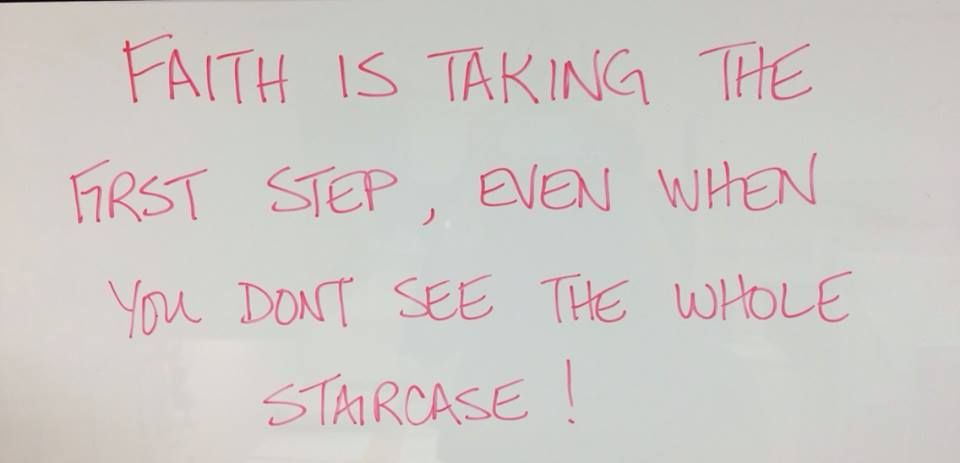 FAITH IS TAKING THE
FIRST STEP, EVEN WHEN
YOU DONT SEE THE WHOLE
STAIRCASE!